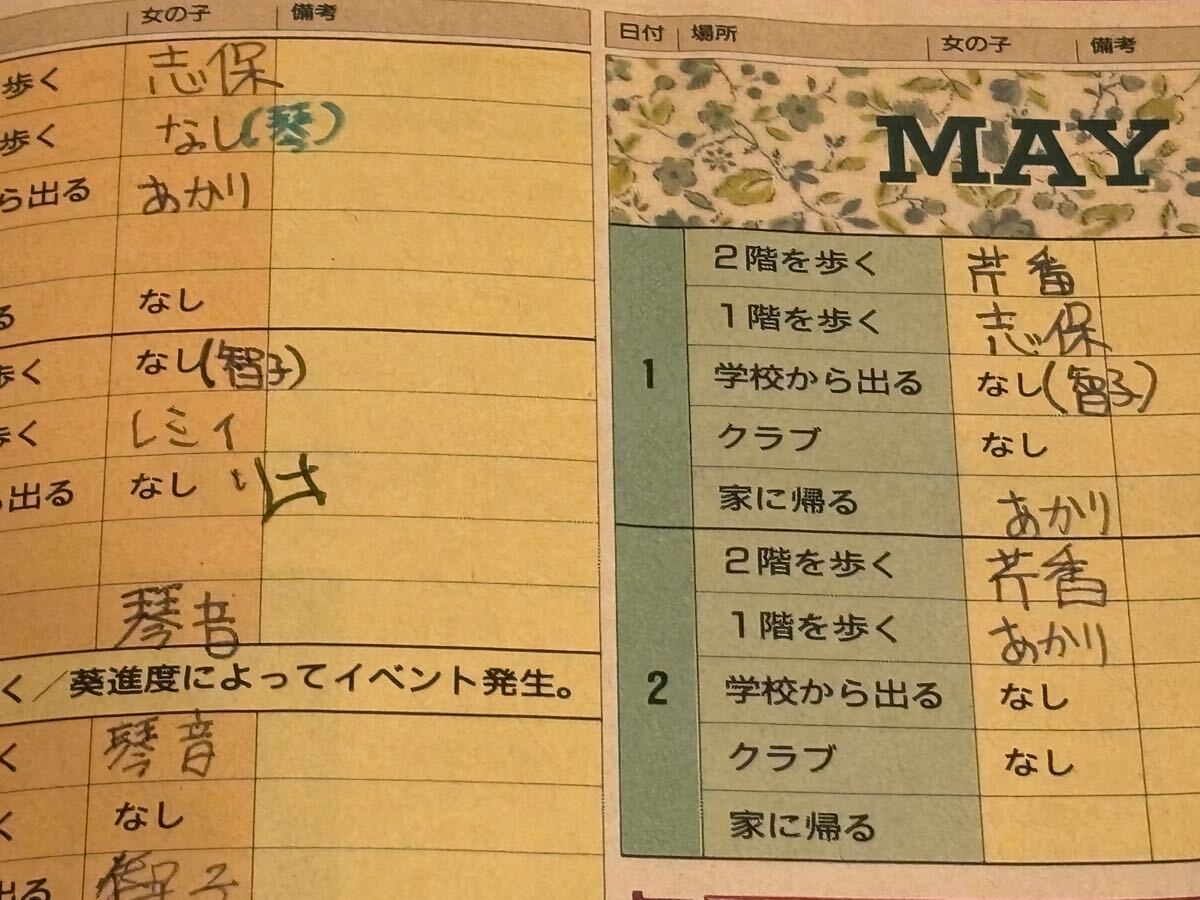 女の子 備考
歩く 志保
歩く なし(琴)
ら出る あかり
る なし
歩く なし(智子)
歩く レミィ
ら出る なし
琴音
く／葵進度によってイベント発生。
く 琴音
く なし
出る 智子
日付 場所 女の子 備考
MAY
1
2階を歩く 芹香
1階を歩く 志保
学校から出る なし(智子)
クラブ なし
家に帰る あかり
2
2階を歩く 芹香
1階を歩く あかり
学校から出る なし
クラブ なし
家に帰る